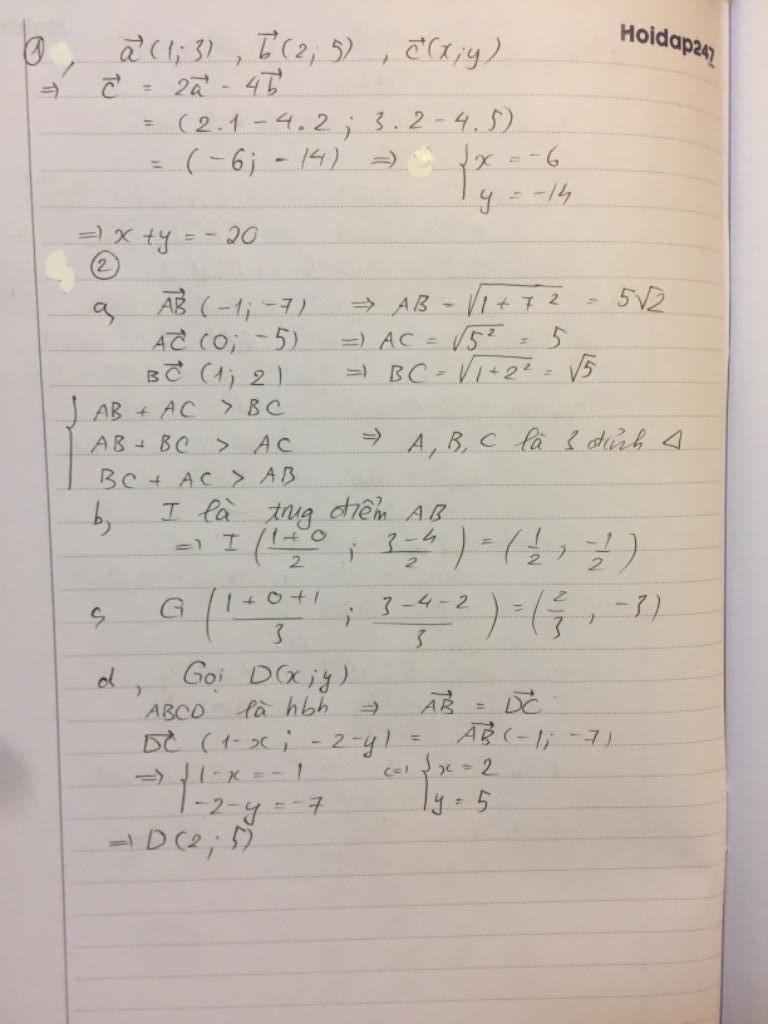 Hoidap247
① , a⃗ (1; 3) , b⃗ (2; 5) , c⃗ (x; y)
⇒ c⃗ = 2a⃗ - 4b⃗
= (2.1 - 4.2 ; 3.2 - 4.5)
= (-6; -14) ⇒ { x = -6
y = -14
⇒ x + y = -20
②
a, AB⃗ (-1; -7) ⇒ AB = √(1 + 7²) = 5√2
AC⃗ (0; -5) ⇒ AC = √(5²) = 5
BC⃗ (1; 2) ⇒ BC = √(1+2²) = √5
{ AB + AC > BC
AB + BC > AC ⇒ A, B, C là 3 đỉnh Δ
BC + AC > AB
b, I là trug điểm AB
⇒ I ((1+0)/2 ; (3-4)/2) = (1/2 ; -1/2)
c, G ((1+0+1)/3 ; (3-4-2)/3) = (2/3 , -3)
d, Gọi D(x; y)
ABCD là hbh ⇒ AB⃗ = DC⃗
DC⃗ (1-x; -2-y) = AB⃗ (-1; -7)
⇒ { 1-x = -1 <=> { x = 2
-2-y = -7 y = 5
⇒ D(2; 5)